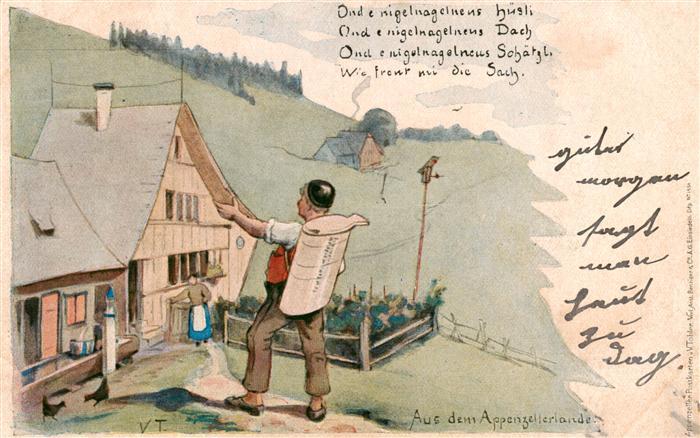 Ond e nigelnagelneus Hüsli
Ond e nigelnagelneus Dach
Ond e nigelnagelneus Schätzli,
Wie freut mi die Sach.
guter
morgen
sagt
man
haut
zu
dag.
Aus dem Appenzellerlande.
VT